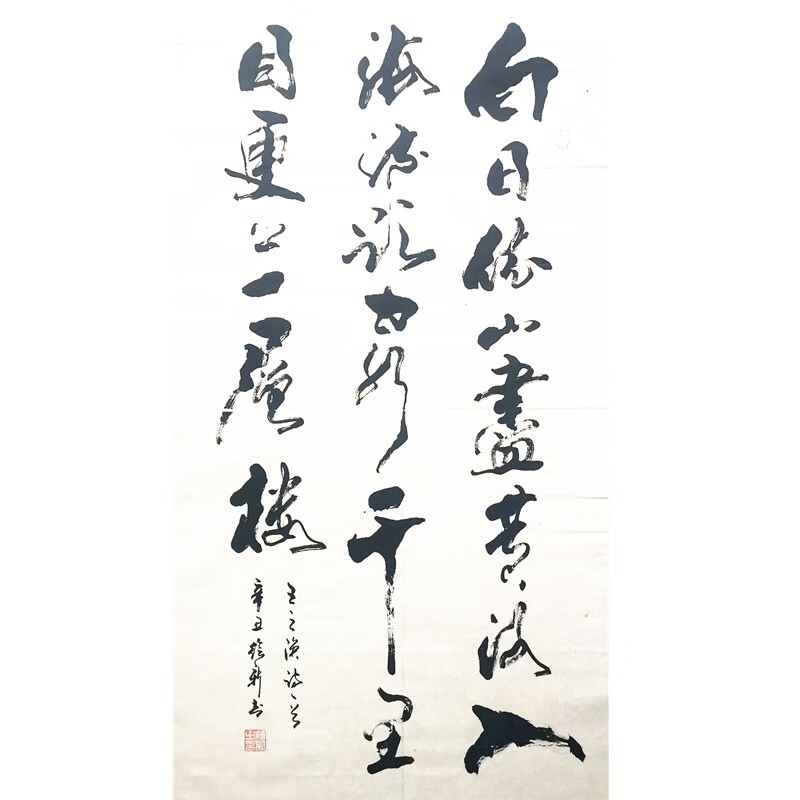 白日依山盡黄河入
海流欲窮千里
目更上一層楼
王之渙诗一首
辛丑新书